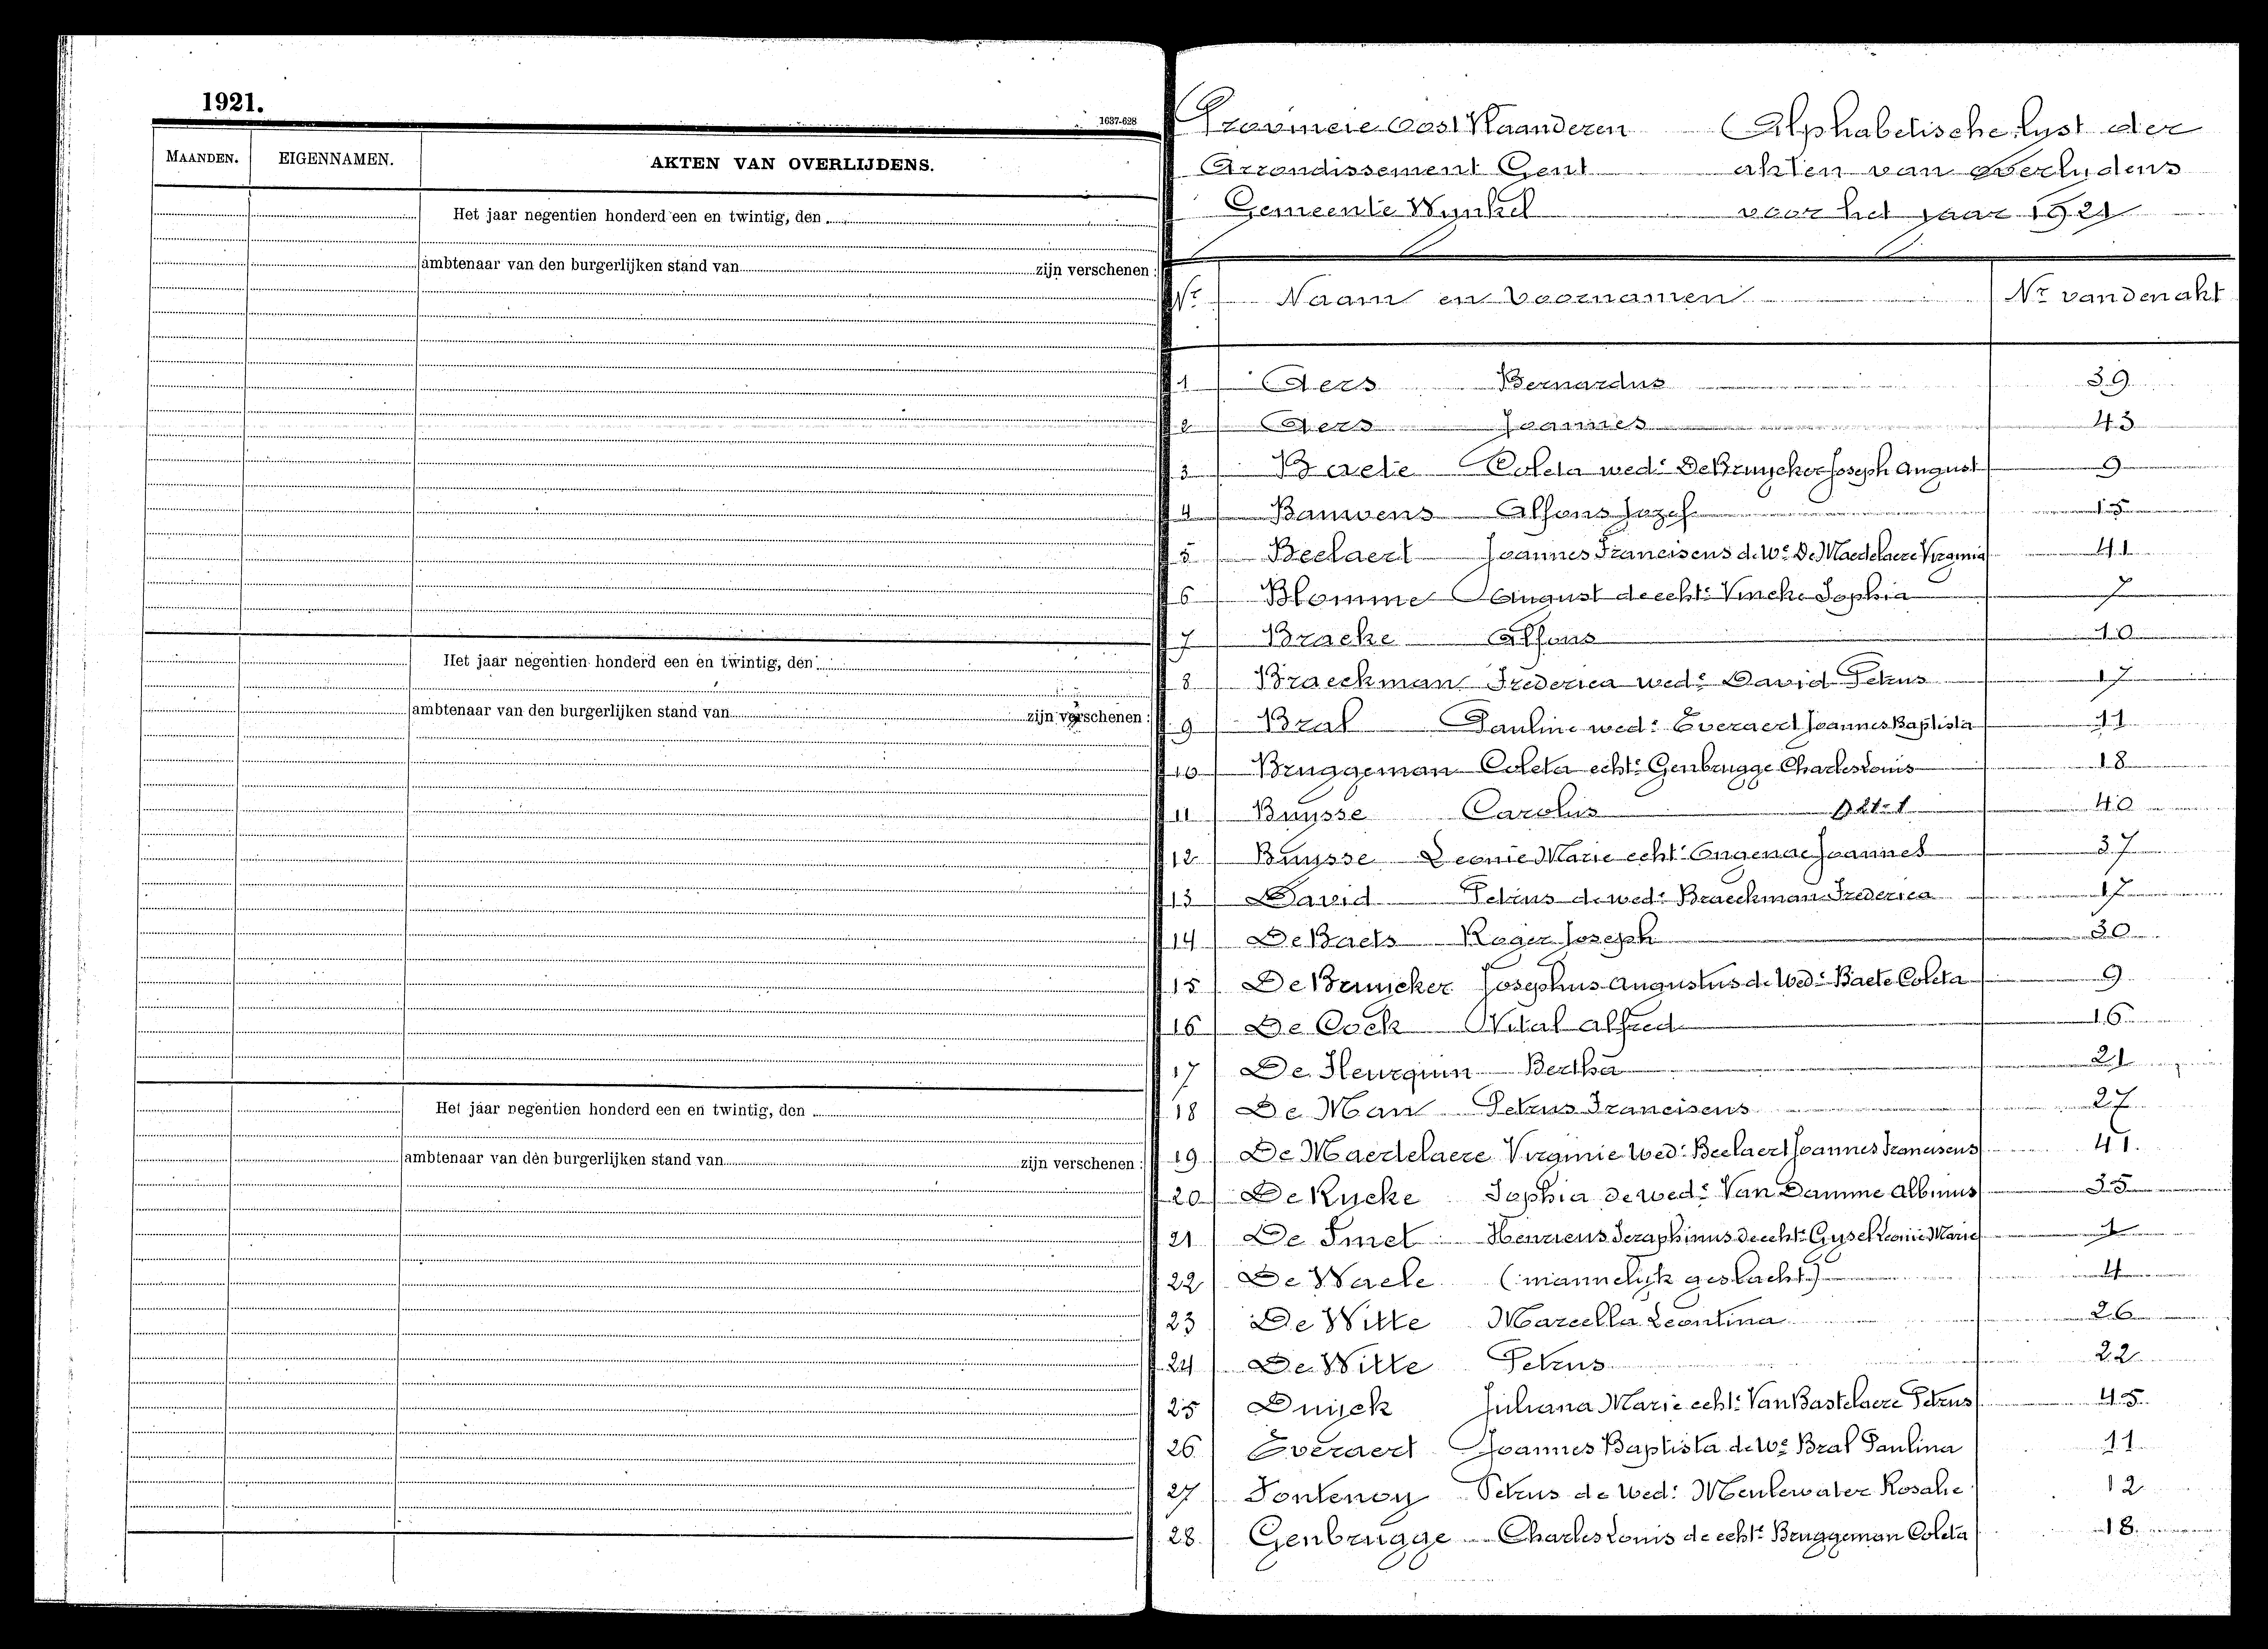 1921.
1637-628
MAANDEN. EIGENNAMEN. AKTEN VAN OVERLIJDENS.
Het jaar negentien honderd een en twintig, den
ambtenaar van den burgerlijken stand van zijn verschenen :
Het jaar negentien honderd een en twintig, den
ambtenaar van den burgerlijken stand van zijn verschenen :
Het jaar negentien honderd een en twintig, den
ambtenaar van den burgerlijken stand van zijn verschenen :
Provincie Oost Vlaanderen Alphabetische lyst der
Arrondissement Gent akten van overlydens
Gemeente Wynkel voor het jaar 1921
Nr Naam en Voornamen Nr van den akt
1 Aers Bernardus 39
2 Aers Joannes 43
3 Baete Coleta wed: De Bruycker Joseph August 9
4 Bauwens Alfons Jozef 15
5 Beelaert Joannes Franciscus de We De Maertelaere Virginia 41
6 Blomme August de echt: Vincke Sophia 7
7 Brache Alfons 10
8 Braeckman Frederica wed: David Petrus 17
9 Bral Pauline wed: Everaert Joannes Baptista 11
10 Bruggeman Coleta echt: Genbrugge Charles Louis 18
11 Buysse Carolus 40
12 Buysse Leonie Marie echt: Ongenae Joannes 37
13 David Petrus de wed: Braeckman Frederica 17
14 De Baets Roger Joseph 30
15 De Bruicker Josephus Augustus de Wed: Baete Coleta 9
16 De Cock Vital Alfred 16
17 De Heurquin Bertha 21
18 De Man Petrus Franciscus 27
19 De Maertelaere Virginie Wed: Beelaert Joannes Franciscus 41.
20 De Rycke Sophia de wed: Van Damme Albinus 35
21 De Smet Henricus Seraphinus de echt: Gysel Leonie Marie 1
22 De Waele (mannelyk geslacht) 4
23 De Witte Marcella Leontina 26
24 De Witte Petrus 22
25 Duijck Juliana Marie echt: Van Bastelaere Petrus 45
26 Everaert Joannes Baptista de We Bral Paulina 11
27 Fontenoy Petrus de Wed: Meulewater Rosalie 12
28 Genbrugge Charles Louis de echt: Bruggeman Coleta 18